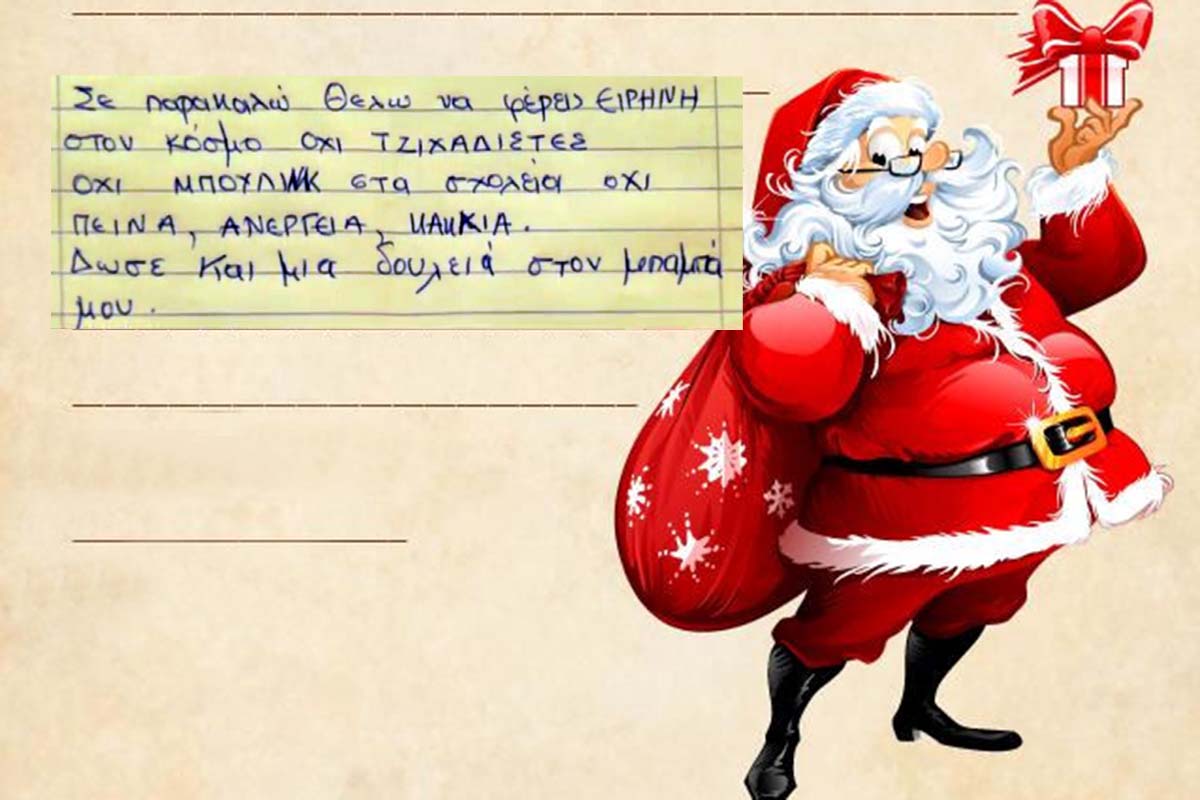 Σε παρακαλώ Θελω να φέρεις ΕΙΡΗΝΗ
στον κόσμο οχι ΤΖΙΧΑΔΙΣΤΕΣ
οχι ΜΠΟΥΛΙΝΚ στα σχολεία οχι
ΠΕΙΝΑ, ΑΝΕΡΓΕΙΑ, ΚΑΚΚΙΑ.
Δωσε Και μια δουλειά στον μπαμπά
μου.